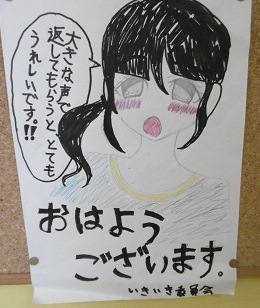 大きな声で
返してもらうと、とても
うれしいです。!!
おはよう
ございます。
いきいき委員会